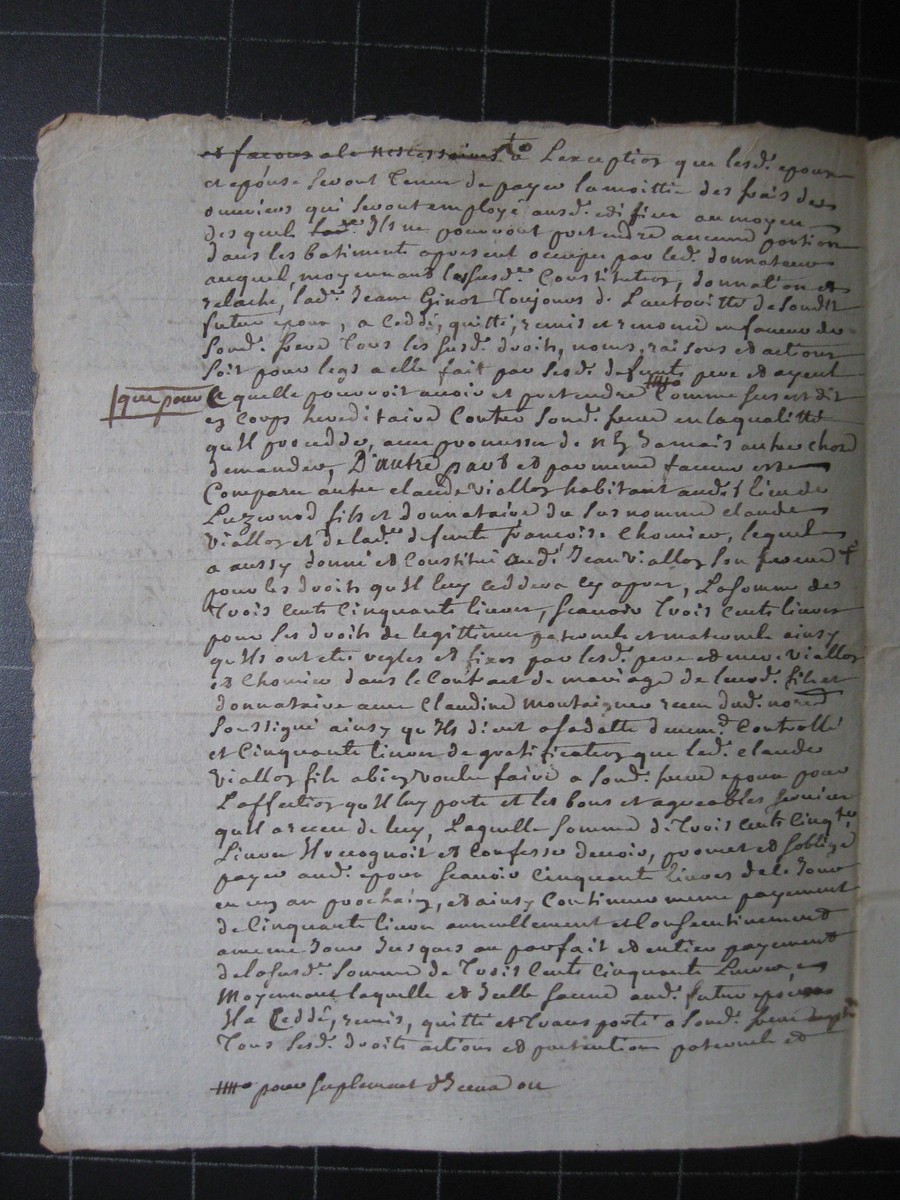 et facons a ce necessaires a Lexception que lesd. epoux
et epouse seront Tenus de payer la moittie des frais des
ouvriers qui seront employé ausd. edifice au moyen
des quels Ils ne pourront pretendre aucune portion
dans les batiments apresent occupes par led. donnateur
auquel, moyennant la susd.e Constitution, donnation et
relache, lad. Jeane Ginot Toujours de Lautoritte de sondit
futur epoux, a Ceddé, quitté, remis et renoncé en faveur de
sond. frere Tous les susd. droits, noms, raisons et actions
soit pour legs a elle fait par sesd. defunts pere et ayeul
que pour Ce quelle pourroit avoir et pretendre Comme sus est dit
es Corps hereditaire Contre sond. frere en la qualitté
qu'il procedde, avec promesse de n'y Jamais autre chose
demander, D'autre part et par meme faveur est
Comparu autre claude viallon habitant aud. lieu de
Luzernod fils et donnataire du susnomme claude
viallon et de lad.e defunte francoise Chomier, lequel
a aussy donné et Constitué aud. Jean viallon son frere
pour les droits qu'il luy ceddera cy apres, La somme de
Trois Cents Cinquante livres, scavoir Trois Cents livres
pour ses droits de legittime paternelle et maternelle ainsy
qu'ils ont eté regles et fixes par lesd. pere et mere viallon
et Chomier dans le Contract de mariage de leurd. fils et
donnataire avec Claudine montaigner receu dud. no.re
soussigné ainsy qu'ils dient a sa datte deuem.t Controllé
et Cinquante livres de gratification que led. claude
viallon fils a bien voulu faire a sond. frere epoux pour
L'affection qu'il luy porte et les bons et agreables services
qu'il a receu de luy, Laquelle somme de Trois Cents Cinq.te
Livres Il recognoit et Confesse devoir, promet et s'oblige
payer aud. epoux scavoir Cinquante livres de ce Jour
en un an prochain, et ainsy Continuer meme payement
de Cinquante livres annuellement et Consecutivement
a meme Jour Jusques au parfait et entier payement
de la susd. somme de Trois Cents Cinquante Livres,
Moyennant laquelle et Icelle sauve aud. futur epoux
Il a Ceddé, remis, quitté et Transporté a sond. frere
Tous sesd. droits actions et pretentions paternels et
pour suplement d'Iceux ou